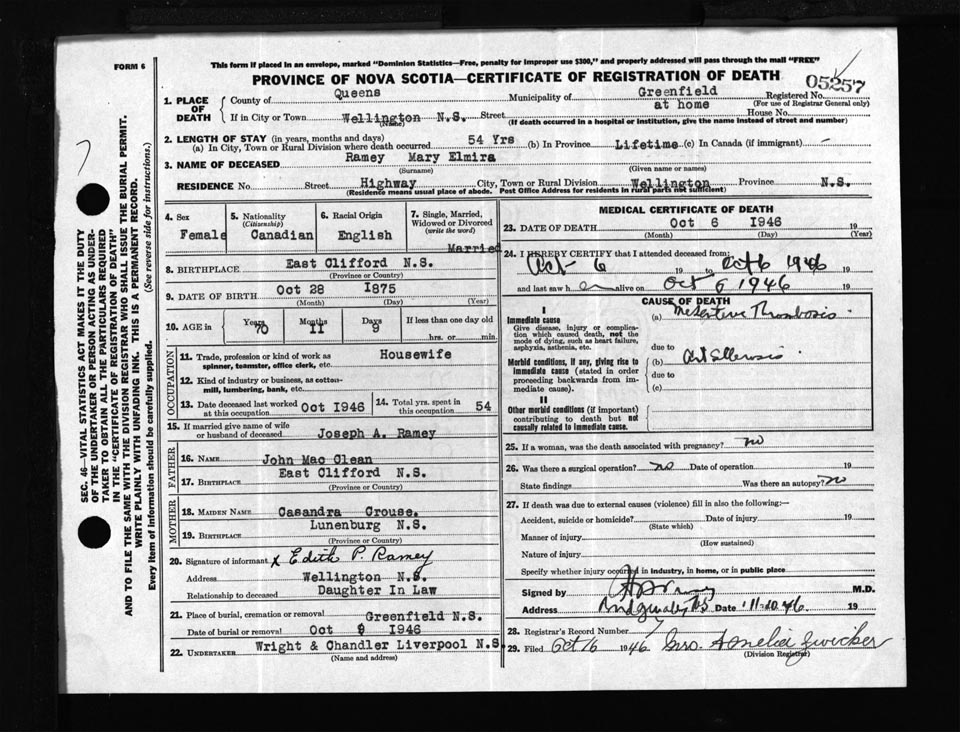 FORM 6
This form if placed in an envelope, marked "Dominion Statistics—Free, penalty for improper use $300," and properly addressed will pass through the mail "FREE"
PROVINCE OF NOVA SCOTIA—CERTIFICATE OF REGISTRATION OF DEATH
05257
1. PLACE OF DEATH
County of Queens Municipality of Greenfield Registered No.
(For use of Registrar General only)
If in City or Town Wellington N.S. Street at home House No.
(Name) (If death occurred in a hospital or institution, give the name instead of street and number)
2. LENGTH OF STAY (in years, months and days)
(a) In City, Town or Rural Division where death occurred 54 Yrs (b) In Province Lifetime (c) In Canada (if immigrant) -
3. NAME OF DECEASED Ramey Mary Elmira
(Surname) (Given name or names)
RESIDENCE No. Street Highway City, Town or Rural Division Wellington Province N.S.
(Residence means usual place of abode. Post Office Address for residents in rural parts not sufficient)
4. Sex
Female
5. Nationality
(Citizenship)
Canadian
6. Racial Origin
English
7. Single, Married, Widowed or Divorced
(write the word)
Married
8. BIRTHPLACE East Clifford N.S.
(Province or Country)
9. DATE OF BIRTH Oct 28 I875
(Month) (Day) (Year)
10. AGE in
Years Months Days If less than one day old
70 11 9 hrs. or min.
OCCUPATION
11. Trade, profession or kind of work as Housewife
spinner, teamster, office clerk, etc.
12. Kind of industry or business, as cotton-
mill, lumbering, bank, etc.
13. Date deceased last worked
at this occupation Oct I946
14. Total yrs. spent in
this occupation 54
15. If married give name of wife
or husband of deceased Joseph A. Ramey
FATHER
16. NAME John Mac Clean
17. BIRTHPLACE East Clifford N.S.
(Province or Country)
MOTHER
18. MAIDEN NAME Casandra Crouse.
19. BIRTHPLACE Lunenburg N.S.
(Province or Country)
20. Signature of informant x Edith P. Ramey
Address Wellington N.S.
Relationship to deceased Daughter In Law
21. Place of burial, cremation or removal Greenfield N.S.
Date of burial or removal Oct 9 I946
22. UNDERTAKER Wright & Chandler Liverpool N.S.
(Name and address)
MEDICAL CERTIFICATE OF DEATH
23. DATE OF DEATH Oct 6 I946 19
(Month) (Day) (Year)
24. I HEREBY CERTIFY that I attended deceased from:
Oct 6 19 to Oct 6 1946 19
and last saw h er alive on Oct 6 1946 19
CAUSE OF DEATH
I
Immediate cause (a) Mesenteric Thrombosis
Give disease, injury or complica-
tion which caused death, not the
mode of dying, such as heart failure,
asphyxia, asthenia, etc.
due to
Morbid conditions, if any, giving rise to
immediate cause (stated in order
proceeding backwards from im-
mediate cause).
(b)
due to
(c)
II
Other morbid conditions (if important)
contributing to death but not
causally related to immediate cause.
25. If a woman, was the death associated with pregnancy? no
26. Was there a surgical operation? no Date of operation 19
State findings Was there an autopsy? no
27. If death was due to external causes (violence) fill in also the following:—
Accident, suicide or homicide? Date of injury 19
(State which)
Manner of injury
(How sustained)
Nature of injury
Specify whether injury occurred in industry, in home, or in public place
Signed by M.D.
Address Date 19
28. Registrar's Record Number
29. Filed Oct 16 1946 Mrs. Amelia Zwicker
(Division Registrar)
SEC. 46—VITAL STATISTICS ACT MAKES IT THE DUTY
OF THE UNDERTAKER OR PERSON ACTING AS UNDER-
TAKER TO OBTAIN ALL THE PARTICULARS REQUIRED
IN THE "CERTIFICATE OF REGISTRATION OF DEATH"
AND TO FILE THE SAME WITH THE DIVISION REGISTRAR WHO SHALL ISSUE THE BURIAL PERMIT.
WRITE PLAINLY WITH UNFADING INK. THIS IS A PERMANENT RECORD.
Every item of information should be carefully supplied. (See reverse side for instructions.)